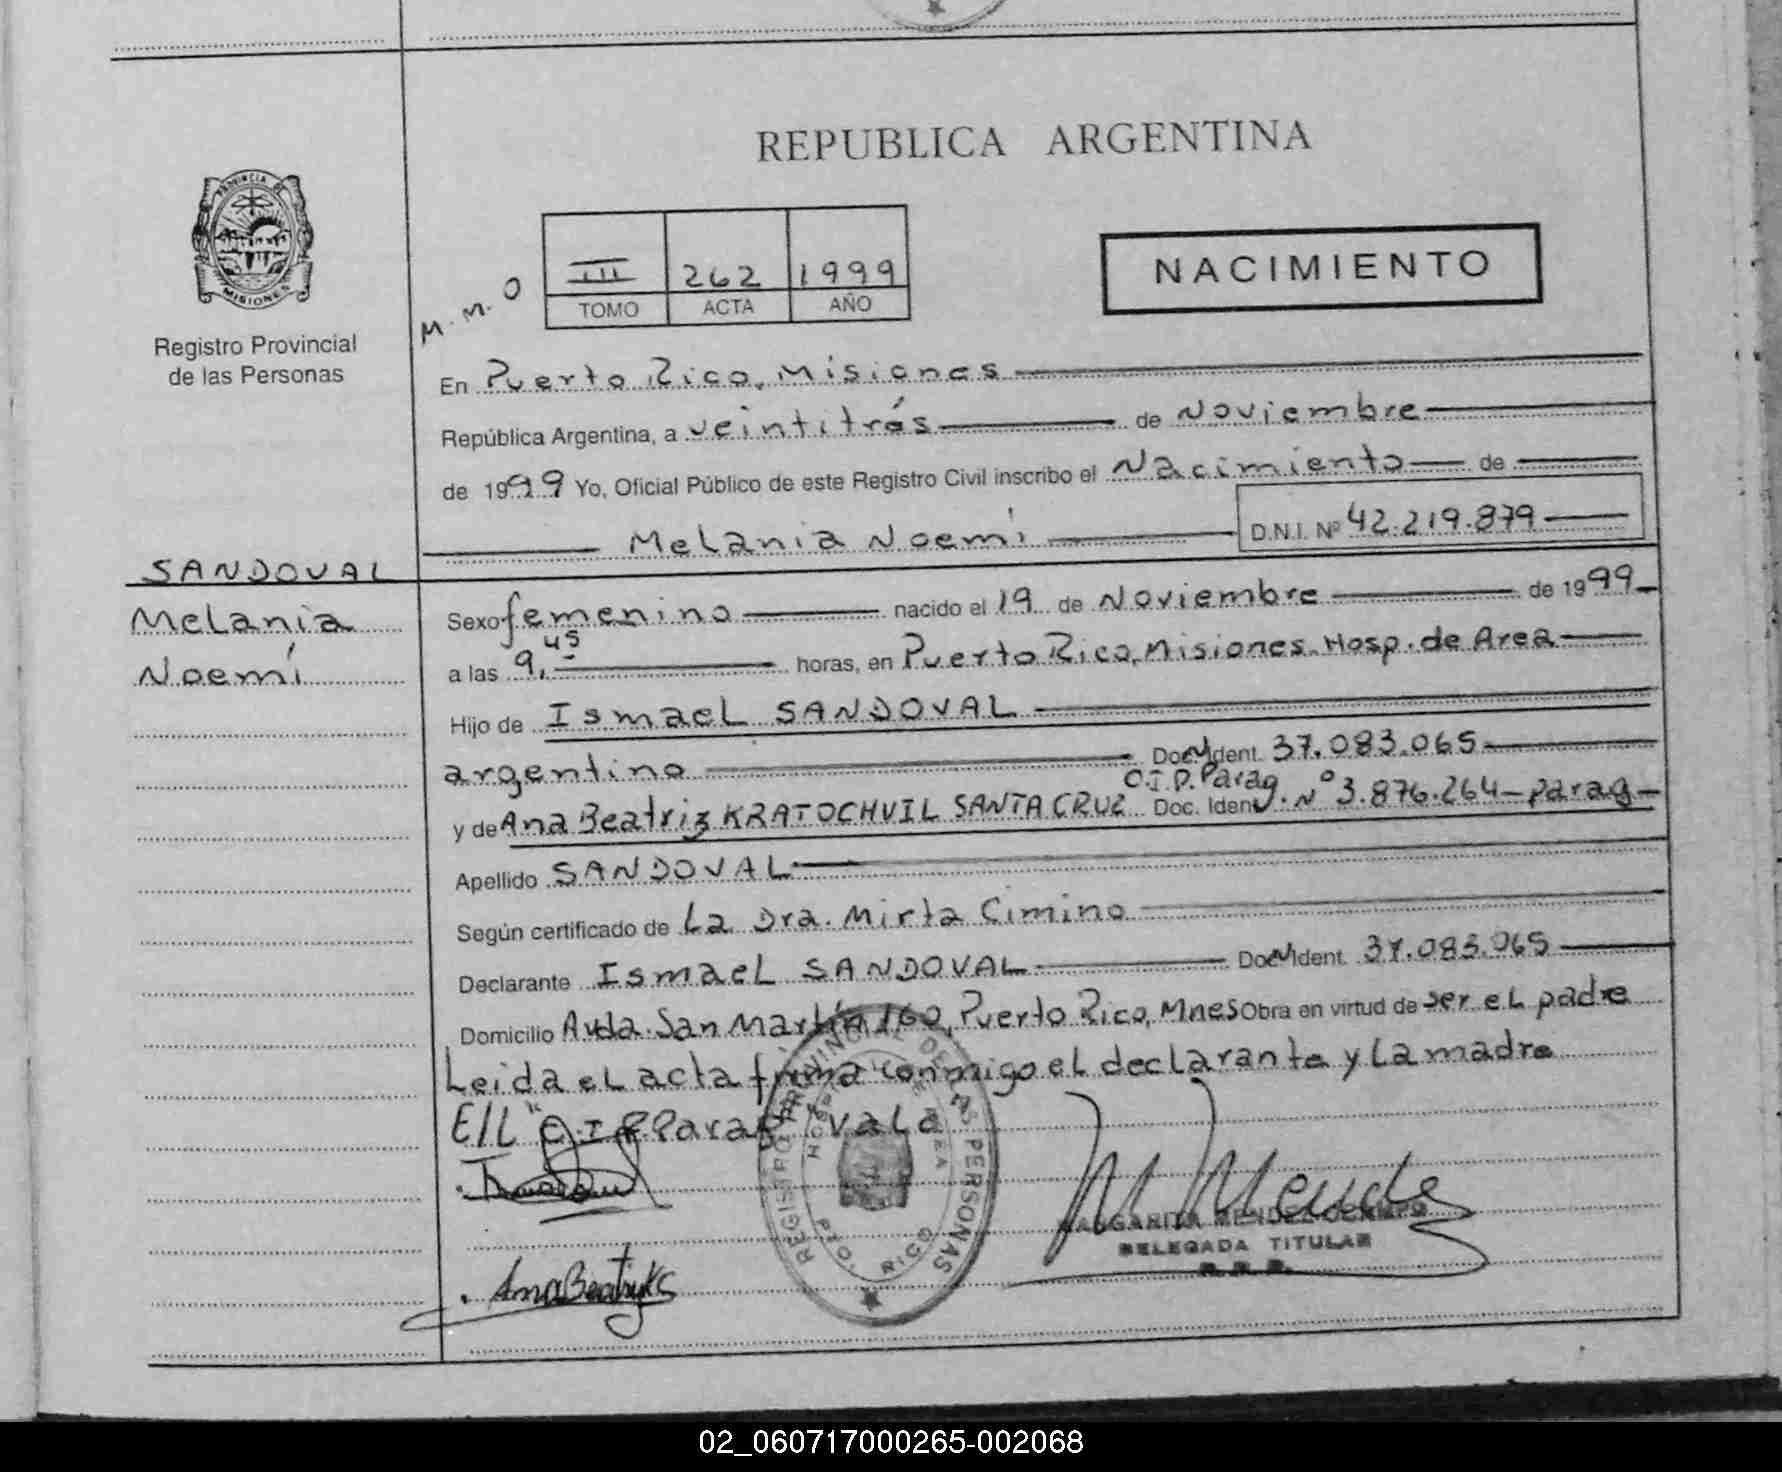 REPUBLICA ARGENTINA
PROVINCIA DE MISIONES
Registro Provincial
de las Personas
M. M. O
III 262 1999
TOMO ACTA AÑO
NACIMIENTO
En Puerto Rico, Misiones
República Argentina, a veintitrés de Noviembre
de 1999 Yo, Oficial Público de este Registro Civil inscribo el Nacimiento de
Melania Noemí D.N.I. Nº 42.219.879
SANDOVAL
Melania
Noemí
Sexo femenino nacido el 19 de Noviembre de 1999
a las 9,45 horas, en Puerto Rico, Misiones. Hosp. de Area
Hijo de Ismael SANDOVAL
argentino Doc. Ident. 37.083.065
C.I.P. Parag.
y de Ana Beatriz KRATOCHVIL SANTA CRUZ Doc. Ident. Nº 3.876.264 - parag
Apellido SANDOVAL
Según certificado de La Dra. Mirta Cimino
Declarante Ismael SANDOVAL Doc. Ident. 37.083.065
Domicilio Avda. San Martín 160, Puerto Rico, Mnes Obra en virtud de ser el padre
Leida el acta firma conmigo el declarante y la madre
E/L "C.I.P. Parag" vale
REGISTRO PROVINCIAL DE LAS PERSONAS
RICO
Ana Beatriz K S
M Mendez
MARGARITA MENDEZ OCAMPO
DELEGADA TITULAR
R. R. P.
02_060717000265-002068